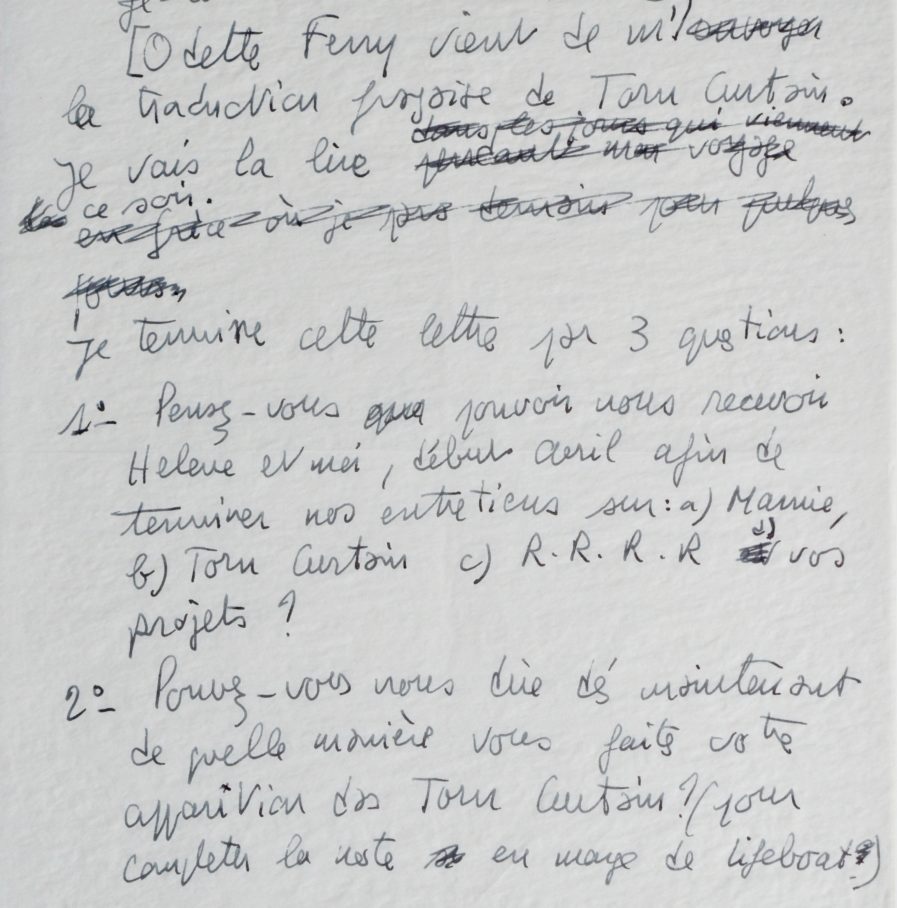 [Odette Ferry vient de m'envoyer
la traduction française de Torn Curtain.
dans les jours qui viennent
Je vais la lire pendant mon voyage
ce soir.
en Grèce où je pars demain pour quelques
jours
Je termine cette lettre par 3 questions :
1º- Pensez-vous que pouvoir nous recevoir
Helene et moi, début avril afin de
terminer nos entretiens sur : a) Marnie,
b) Torn Curtain c) R.R.R.R d) vos
projets ?
2º- Pouvez-vous nous dire dès maintenant
de quelle manière vous faites votre
apparition dans Torn Curtain ? (pour
compléter la note en marge de lifeboat)